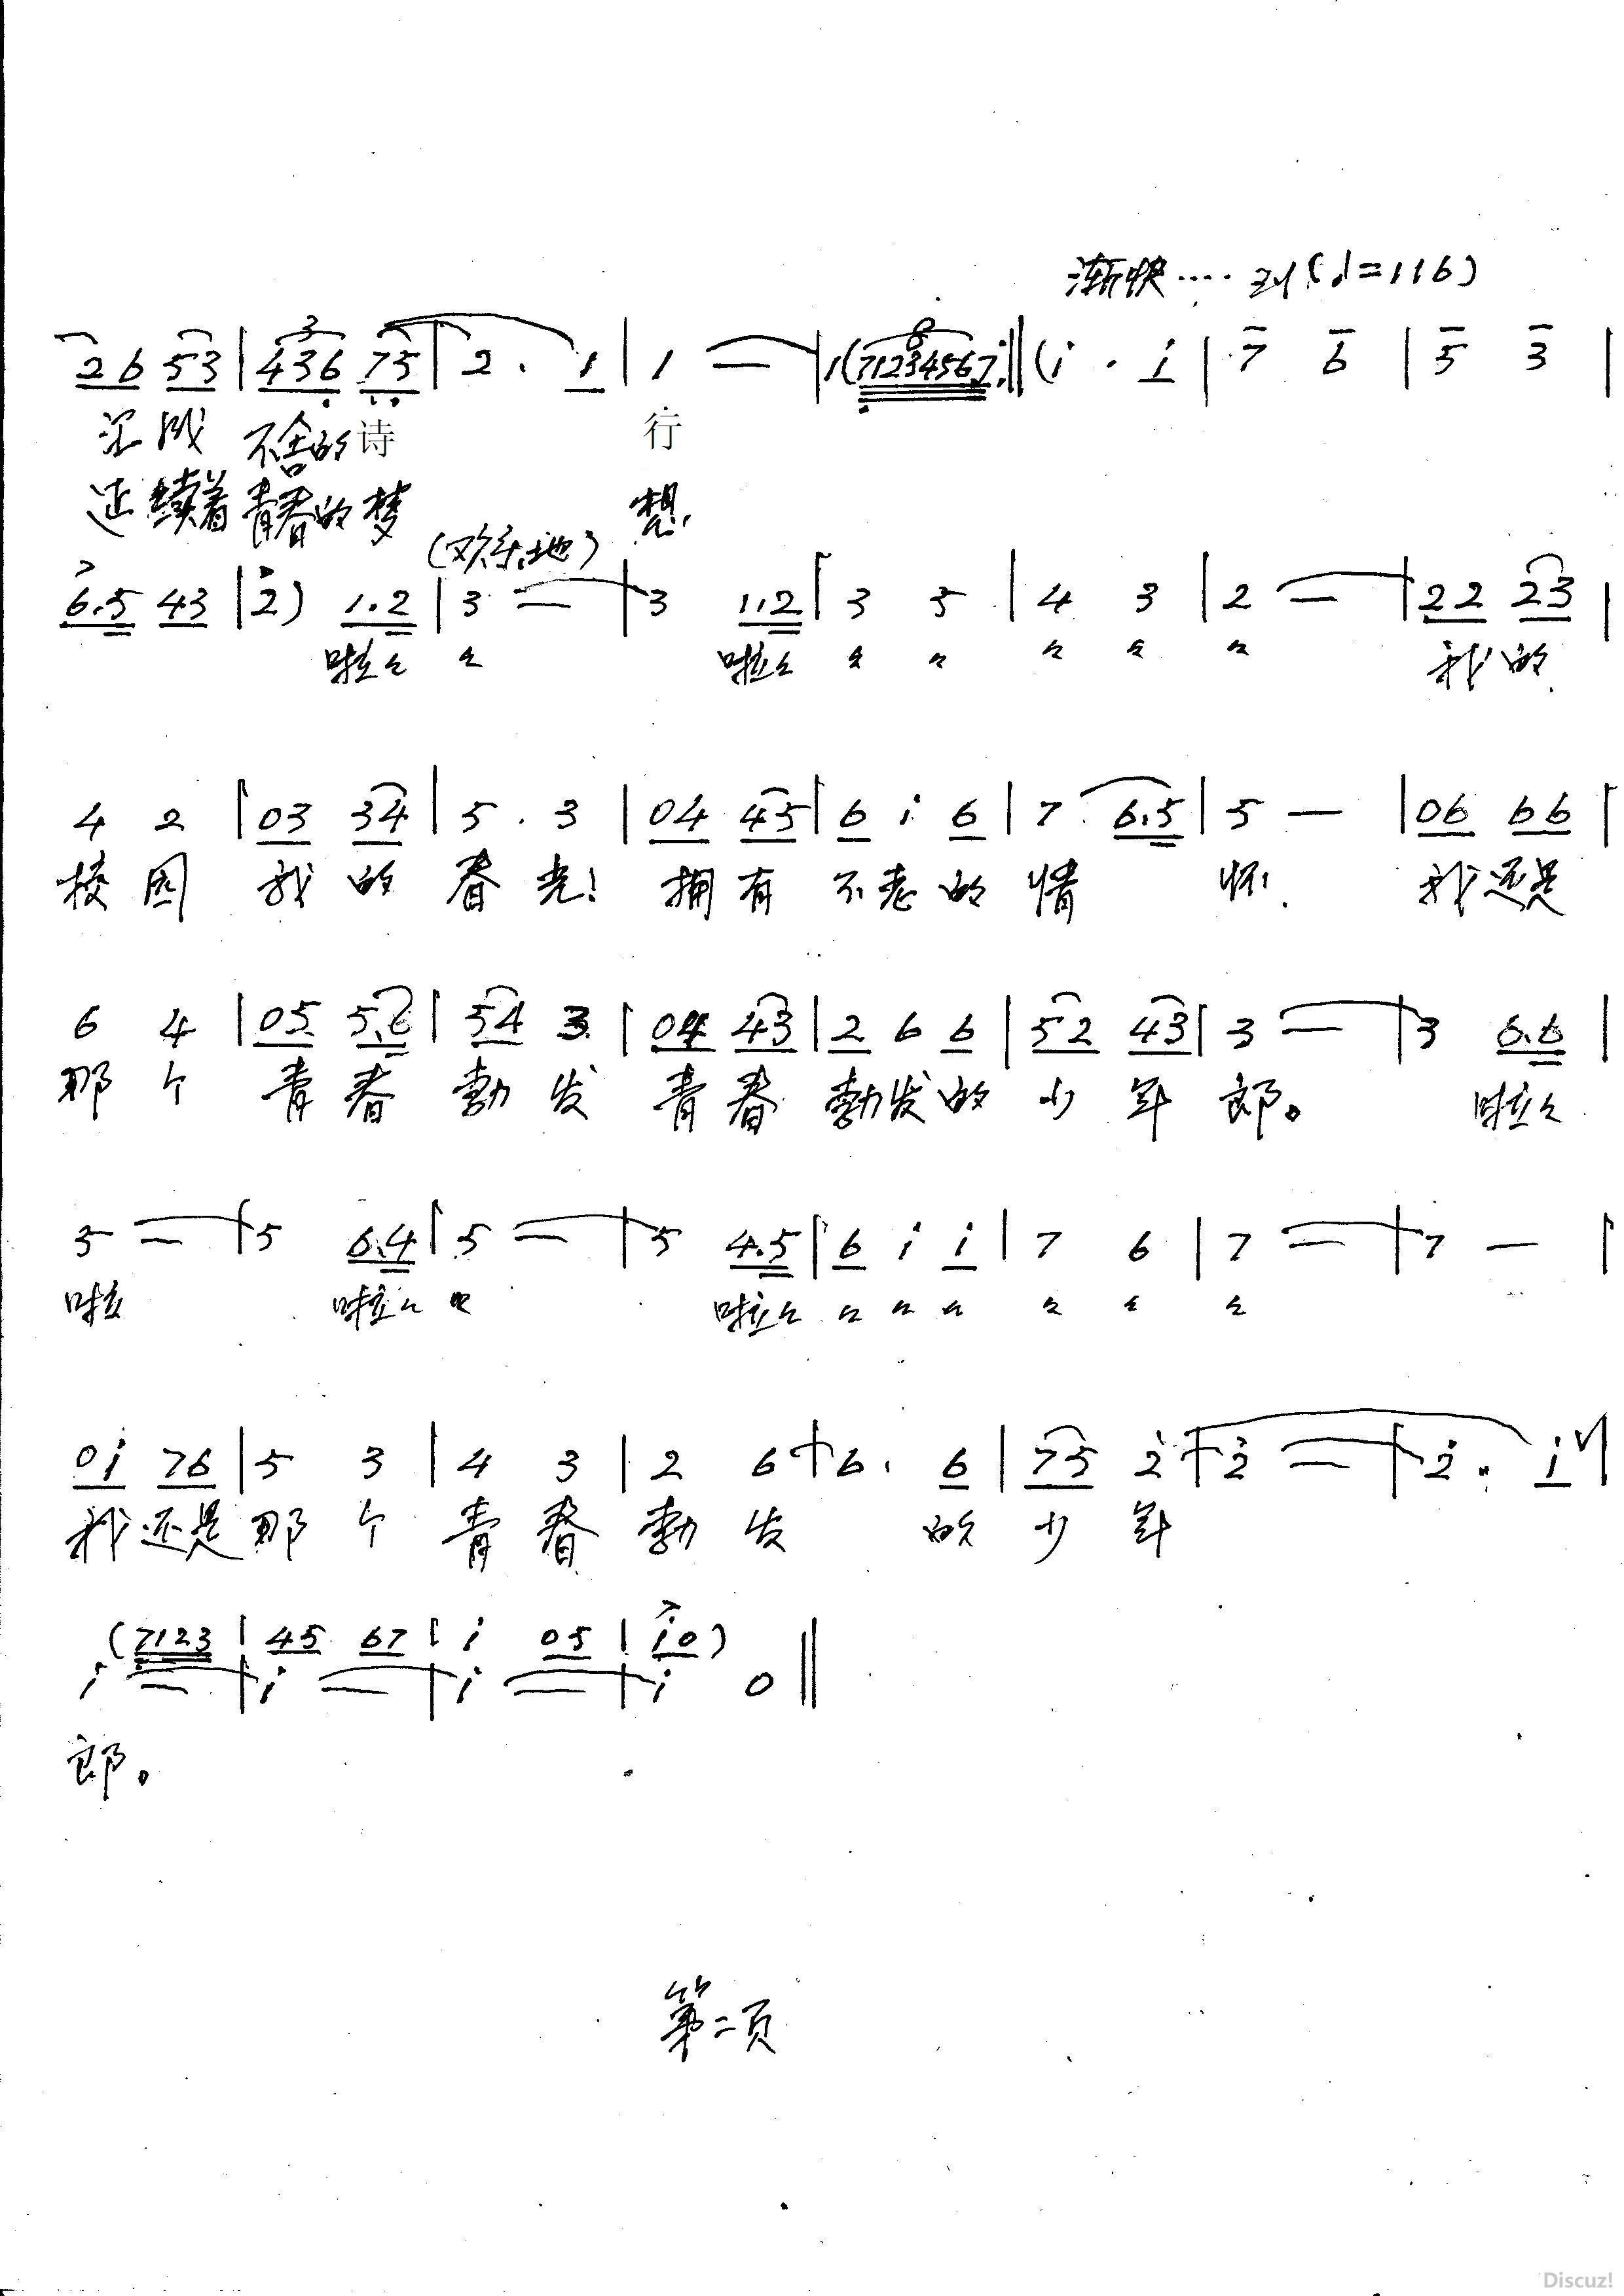 渐快····到(♩=116)
2 6 5 3 | 4 3 6 7 5 | 2 . 1 | 1 — | 1 (7 1 2 3 4 5 6 7 :‖ (i . i | 7 6 | 5 3 |
汇成 不舍的诗 行
延续着青春的梦 想,
(欢乐地)
6.5 43 | 2) 1.2 | 3 — | 3 1.2 | 3 5 | 4 3 | 2 — | 22 23 |
啦〻 〻 啦〻 〻 〻 〻 〻 〻 我的
4 2 | 03 34 | 5 . 3 | 04 45 | 6 i 6 | 7 6.5 | 5 — | 06 66 |
校园 我的春光! 拥有不老的情 怀! 我还是
6 4 | 05 5.6 | 54 3 | 04 43 | 2 6 6 | 52 43 | 3 — | 3 6.6 |
那个 青春勃发 青春勃发的少年郎。 啦〻
5 — | 5 6.4 | 5 — | 5 4.5 | 6 i i | 7 6 | 7 — | 7 — |
啦 啦〻 〻 啦〻 〻 〻 〻 〻 〻 〻
0i 76 | 5 3 | 4 3 | 2 6 | 6. 6 | 75 2 | 2 — | 2 . i |
我还是那个青春勃发 的少年
(7123 | 45 67 | i 05 | i0)
i — | i — | i — | i 0 ‖
郎。
第二页
Discuz!